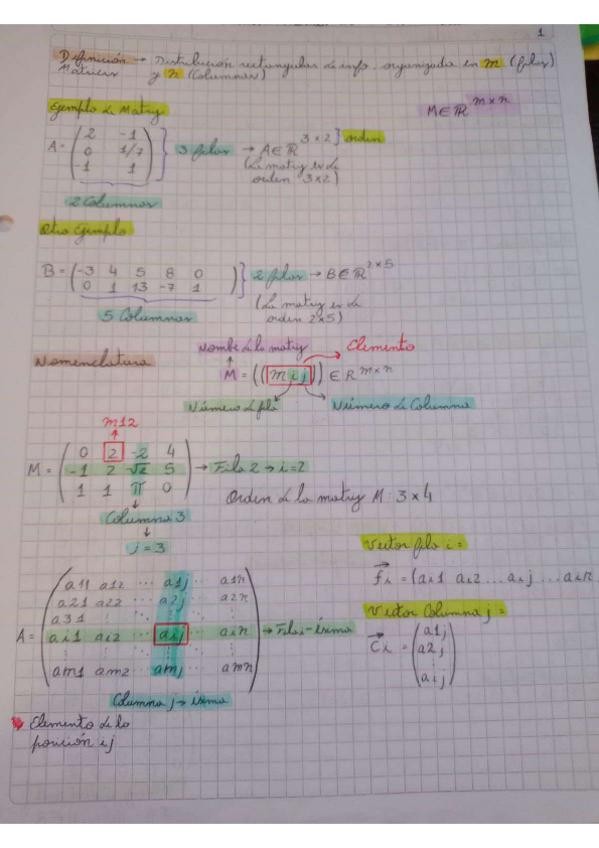 1
Definición → Distribución rectangular de info. organizada en m (filas)
Matrices y n (Columnas)
Ejemplo de Matriz
M ∈ ℝ^{m×n}
A = ( 2 -1 } 3 filas → A ∈ ℝ^{3×2} } orden
0 1/7 (La matriz es de
-1 1 ) orden 3×2)
2 Columnas
Otro Ejemplo
B = ( -3 4 5 8 0 } 2 filas → B ∈ ℝ^{2×5}
0 1 13 -7 1 ) (La matriz es de
5 Columnas orden 2×5)
Nombre de la matriz Elemento
Nomenclatura M = ((m i j)) ∈ R^{m×n}
Número de fila Número de Columna
m12
M = ( 0 2 -2 4
-1 2 √2 5 → Fila 2 → i=2
1 1 π 0 ) Orden de la matriz M: 3×4
Columna 3
j = 3
Vector fila i =
fi = (ai1 ai2 ... aij ... ain
Vector Columna j =
Ci = ( a1j
a2j
⋮
aij )
A = ( a11 a12 ... a1j ... a1n
a21 a22 ... a2j ... a2n
a31 ⋮
ai1 ai2 ... aij ... ain → Fila i-ésima
⋮
am1 am2 ... amj ... amn )
Columna j → ésima
Elemento de la
posición ij